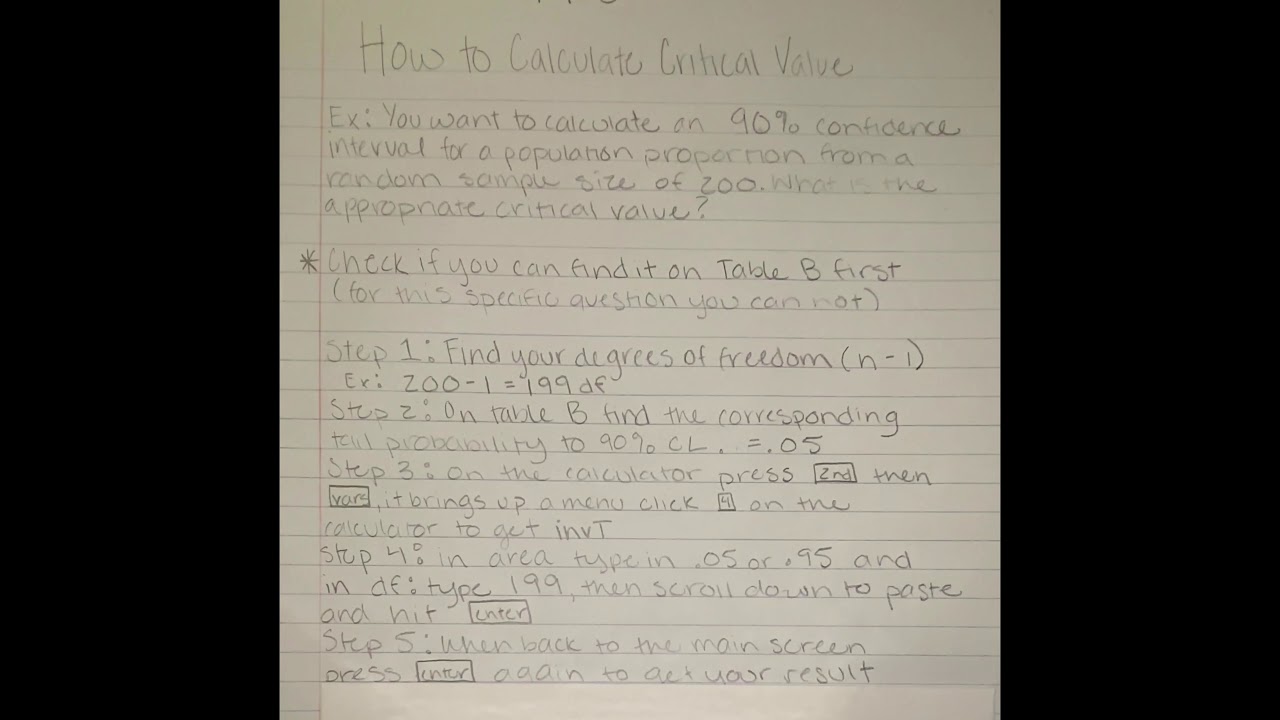 How to Calculate Critical Value
Ex: You want to calculate an 90% confidence
interval for a population proportion from a
random sample size of 200. What is the
appropriate critical value?
* Check if you can find it on Table B first
(for this specific question you can not)
Step 1: Find your degrees of freedom (n-1)
Ex: 200-1 = 199 df
Step 2: On table B find the corresponding
tail probability to 90% CL. =.05
Step 3: On the calculator press 2nd then
vars, it brings up a menu click 4 on the
calculator to get invT
Step 4: in area type in .05 or .95 and
in df: type 199, then scroll down to paste
and hit enter
Step 5: When back to the main screen
press enter again to get your result